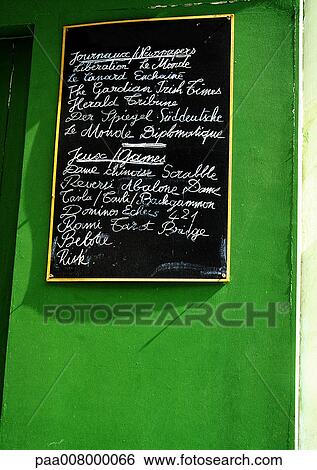 Journaux/Newspapers
Libération Le Monde
Le Canard Enchaîné
The Gardian Irish Times
Herald Tribune
Der Spiegel Süddeutsche
Le Monde Diplomatique
Jeux/Games
Dame chinoise Scrabble
Reversi Abalone Dame
Tavla/Tavli/Backgammon
Domino Echecs 421
Rami Tarot Bridge
Belote
Risk
FOTOSEARCH
paa008000066 www.fotosearch.com